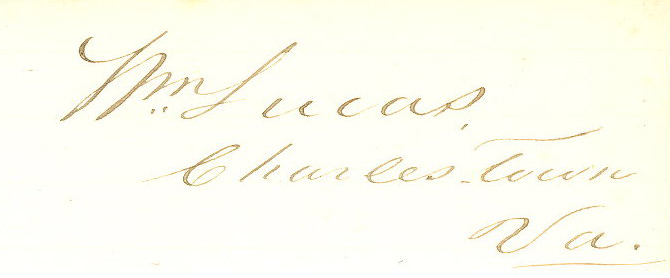 Wm. Lucas,
Charles-Town
Va.